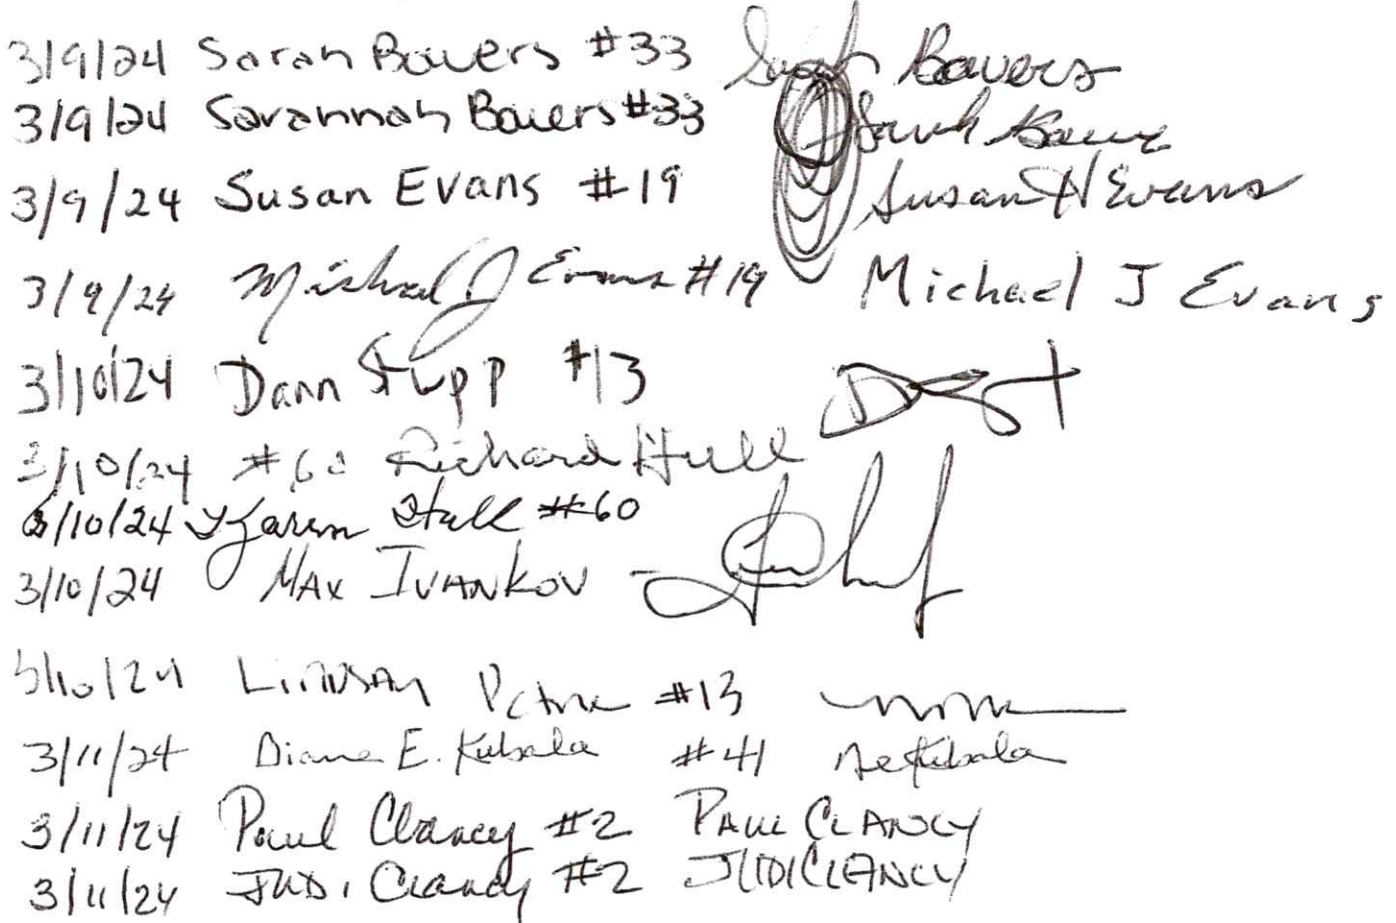 3/9/24 Sarah Bowers #33 Sarah Bowers
3/9/24 Savannah Bowers #33
3/9/24 Susan Evans #19 Susan H Evans
3/9/24 Michael J Evans #19 Michael J Evans
3/10/24 Dann Stupp #13
3/10/24 #60 Richard Hull
3/10/24 Karen Hull #60
3/10/24 Max Ivankov
3/10/24 Lindsay #13
3/11/24 Diane E. Kubala #41 DeKubala
3/11/24 Paul Clancy #2 PAUL CLANCY
3/11/24 Judi Clancy #2 JUDI CLANCY